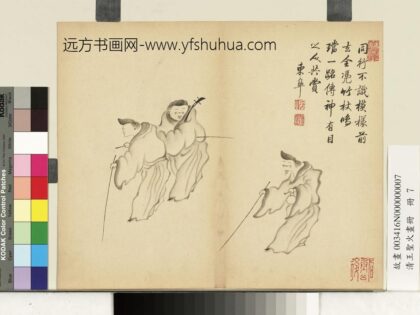 远方书画网-www.yfshuhua.com
同行不識模樣前
去全憑竹杖鳴
璫一路傳神有目
之人共賞
東阜
KODAK Color Control Patches
故畫 003416N000000007
清王聖火畫冊 冊 7